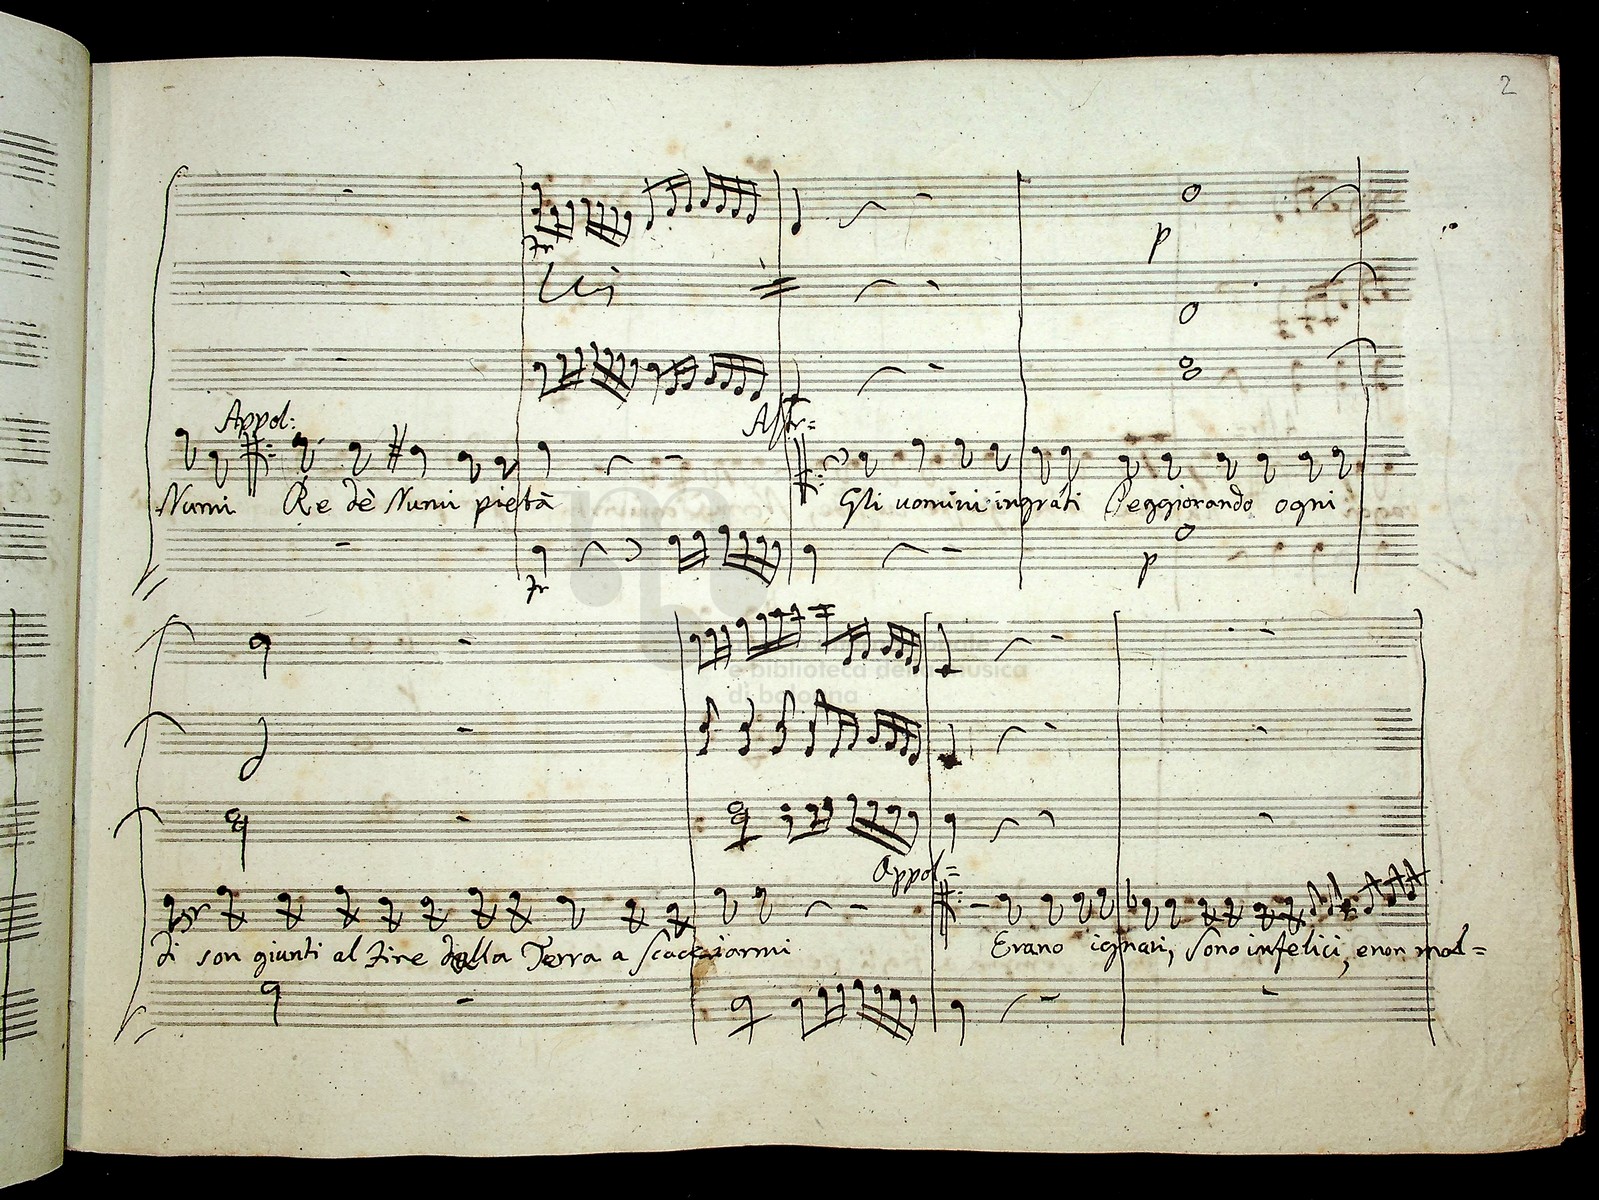 2
Appol: Astr=
Numi Re dè Numi pietà Gli uomini ingrati Peggiorando ogni
p
p
Appol=
di son giunti al fine della Terra a scacciarmi Erano ignari, sono infelici, e non mal=
e biblioteca della musica
di bologna